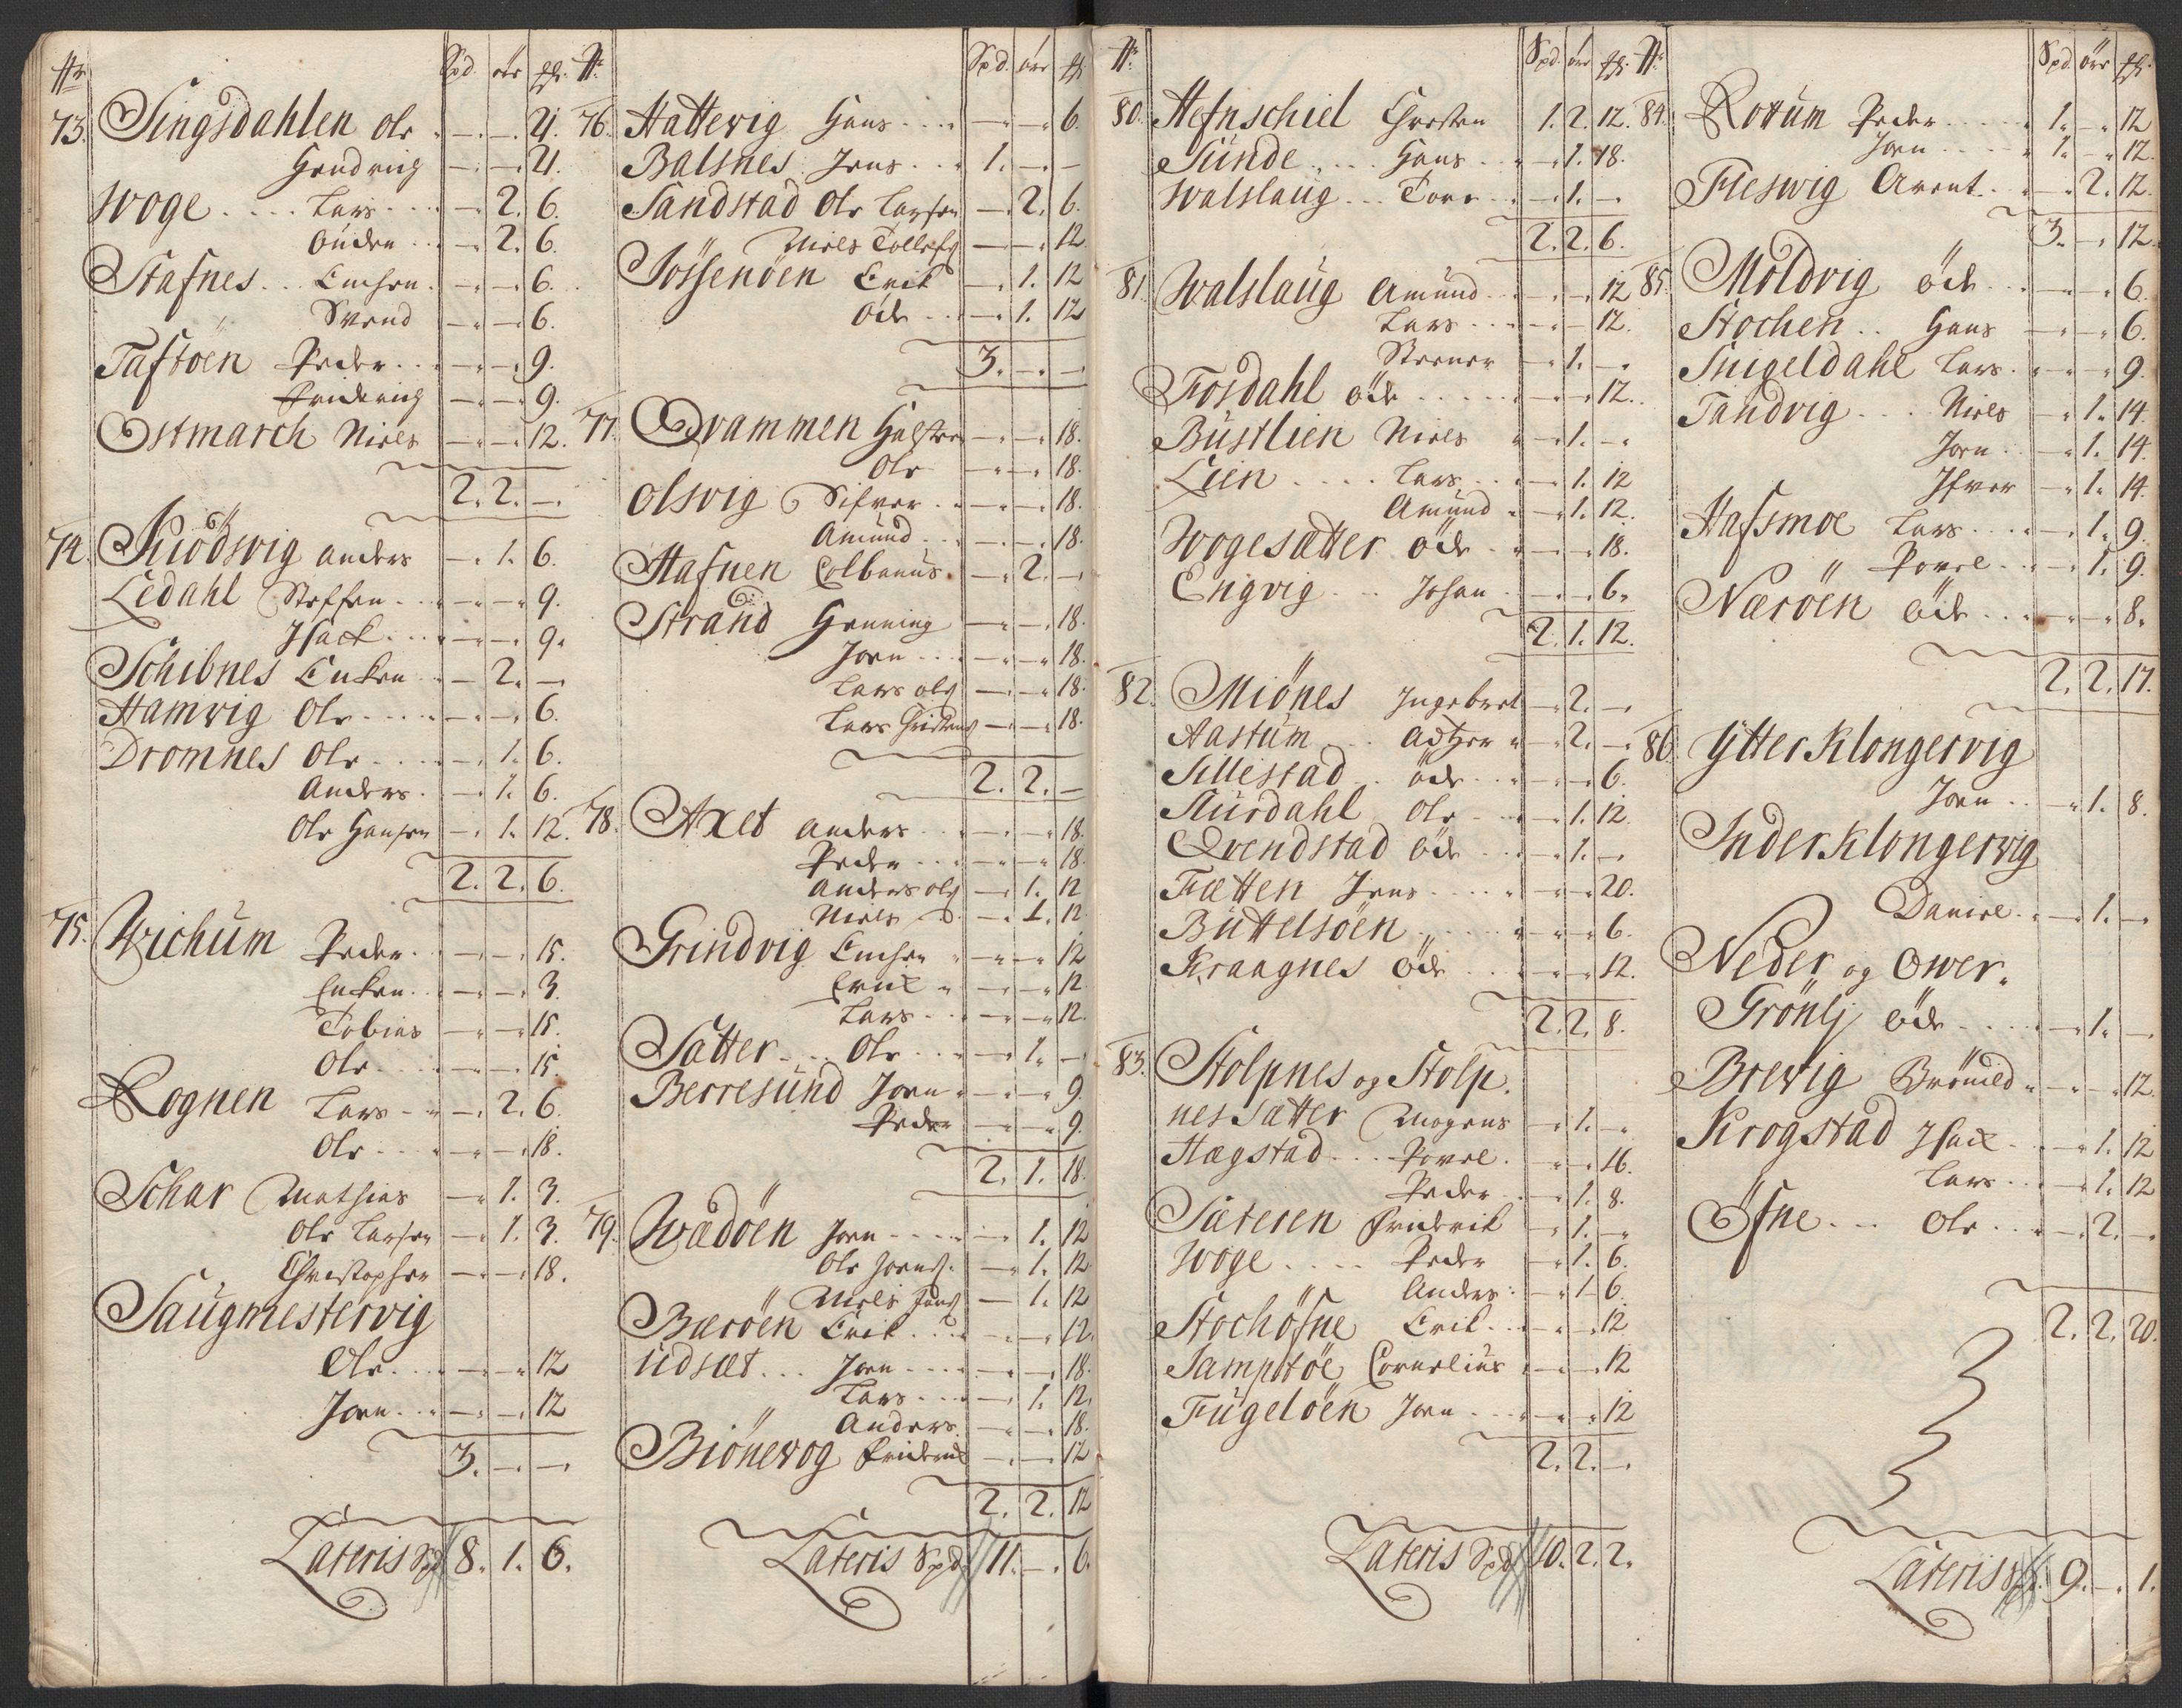 No Spd. ör ff.
73. Singsdahlen Ole . — . — . 21.
Hendrich — . — . 21.
Woge .... Lars .... — . 2. 6.
Auden .. — . 2. 6.
Stafnes ... Enchen . — . — . 6.
Svend — . — . 6.
Taftöen Peder ... — . — . 9.
Friderich — . — . 9.
Ostmarch Niels — . — . 12.
2. 2. —.
74. Kiödsvig anders — . 1. 6.
Ledahl Steffen ... — . — . 9.
Isack .... — . — . 9.
Schibnes Enken .. — 2. —
Hamvig Ole .... — . — . 6.
Dromnes Ole .... — . 1. 6.
Anders . — . 1. 6.
Ole Hansen — . 1. 12.
2. 2. 6.
75. Wichum Peder . — . — . 15.
Enken .. — . — . 3.
Tobias — . — . 15.
Ole .... — . — . 15.
Rognen Lars .. — . 2. 6.
Ole .... — . — . 18.
Schar Mathias — . 1. 3.
Ole Larsen — . 1. 3.
Christopher — . — . 18.
Saugmestervig
Ole .... — . — . 12
Joen ... — . — . 12
3. — . —
Lateris Spd 8. 1. 6.
No Spd. ör ff
76. Hattevig Hans .... — . — . 6.
Balsnes Jens ... 1. — . —
Sandstad Ole Larsen — . 2. 6.
Niels Tollefs — . — . 12
Jossenöen Erik — . 1. 12
öde ... — . 1. 12
3. — . —
77. Qvammen Halsten — . — . 18.
Ole — . — . 18.
Olsvig Sifver .. — . — . 18.
Amund ... — . — . 18.
Hafnen Colbanus . — . 2. —.
Strand Henning — . — . 18.
Joen .... — . — . 18.
Lars ols — . — . 18.
Lars — . — . 18.
2. 2. —
78. Axet anders ... — . — . 18.
Peder ... — . — . 18.
Anders ols — . 1. 12
Niels — . 1. 12
Grindvig Enchen — . — . 12
Erik — . — . 12.
Lars ... — . — . 12.
Satter ... Ole ... — . 1. —
Berresund Joen . — . — . 9.
Peder — . — . 9.
2. 1. 18.
79. Wadöen Joen .... — . 1. 12
Ole Joens. — . 1. 12
Niels Jons — . 1. 12
Bæröen Erik ... — . — . 12.
Udsæt ... Joen .... — . — . 18.
Lars .... — . 1. 12.
Anders . — . — . 18.
Biönevog Friderik — . — . 12
2. 2. 12
Lateris Spd 11. — . 6.
No Spd. ör ff.
80. Hefnschiel Chresten 1. 2. 12.
Sunde .... Hans .. — . 1. 18.
Walslaug ... Tore .. — . 1. —.
2. 2. 6.
81. Walslaug Amund .. — . — . 12
Lars ... — . — . 12.
Steener — . 1. —.
Fosdahl öde ..... — . — . 12.
Bustlien Niels — . 1. —.
Lien .... Lars .. — . 1. 12
Amund . — . 1. 12.
Wogesætter Öde . — . — . 18.
Engvig ... Johan . — . — . 6.
2. 1. 12.
82. Miönes Ingebret — . 2. —.
Aastum ... — . 2. —.
Sillestad .. öde ... — . — . 6.
Sturdahl Ole ... — . 1. 12.
Qvendstad öde ... — . 1. —.
Fætten Jens .... — . — . 20.
Buttelsöen ...... — . — . 6.
Kraagnes Öde ... — . — . 12.
2. 2. 8.
83. Stolpnes og Stolp.
nes sætter Mogens — . 1. —.
Hægstad ... Povel . — . — . 16.
Peder .. — . 1. 8.
Sæteren Friderik — . 1. —.
Woge .... Peder — . 1. 6.
Anders . — . 1. 6.
Stochöfne Erik ... — . — . 12
Samptöe Cornelius — . — . 12
Fugelöen Joen ... — . — . 12
2. 2. —.
Lateris Spd 10. 2. 2.
No Spd. ör ff.
84. Rottum Peder ..... 1. — . 12
Joen .... 1. — . 12.
Fleswig Arent . — . 2. 12.
3. — . 12.
85. Moldvig öde .. — . — . 6.
Stochen .. Hans — . — . 6.
Snigeldahl Lars . — . — . 9.
Tandvig ... Niels — . 1. 14.
Joen .. — . 1. 14.
Ifver — . 1. 14.
Hafsmoe Lars ... — . 1. 9.
Povel .. — . 1. 9.
Næröen öde ... — . — . 8.
2. 2. 17.
86. Ytter Klongervig
Joen .. — . 1. 8.
Inder Klongervig
Daniel . — . 1. —.
Neder og Ower.
Grönlj öde .... — . 1. —
Brevig Brönild . — . — . 12.
Krogstad Isack .. — . 1. 12
Lars ... — . 1. 12
Öfne ... Ole ... — . 2. —.
2. 2. 20.
Lateris Spd. 9. — . 1.